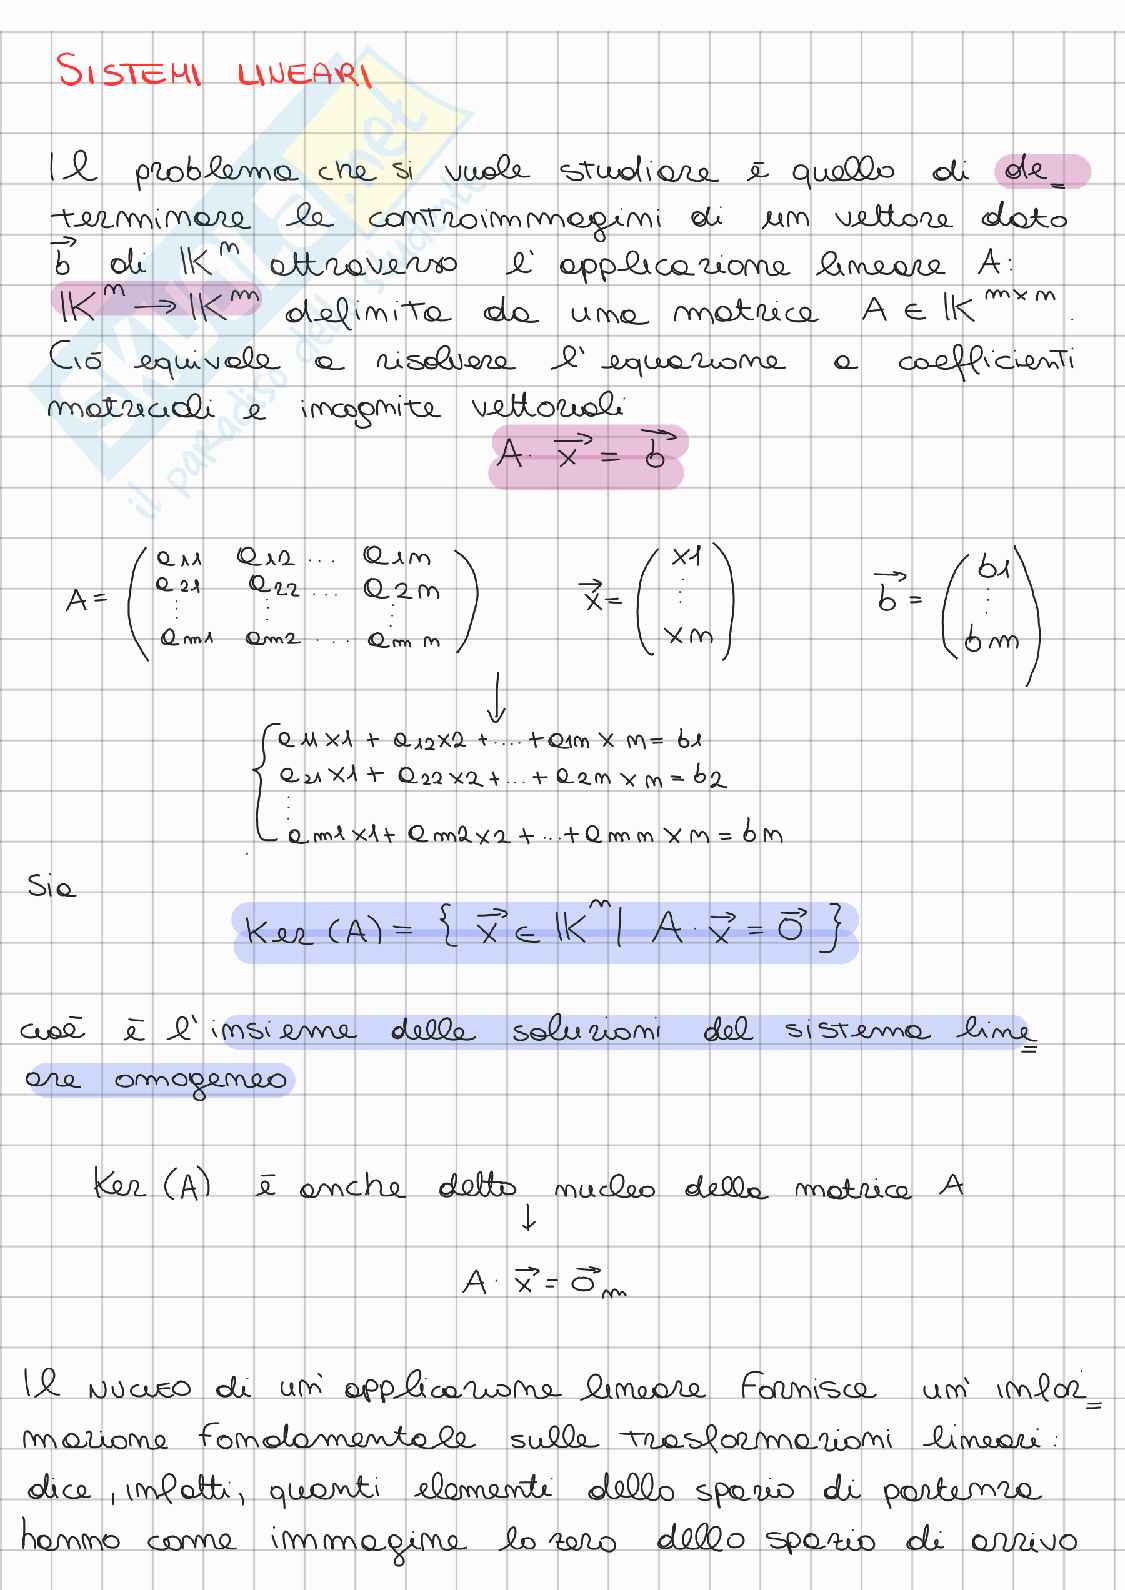 SISTEMI LINEARI
Il problema che si vuole studiare è quello di de_
terminare le controimmagini di un vettore dato
b⃗ di 𝕂^m attraverso l'applicazione lineare A:
𝕂^n → 𝕂^m definita da una matrice A ∈ 𝕂^m×n.
Ciò equivale a risolvere l'equazione a coefficienti
matriciali e incognite vettoriali
A · x⃗ = b⃗
A = ( a11 a12 ... a1n ; a21 a22 ... a2n ; ⋮ ⋮ ⋮ ; am1 am2 ... amn ) x⃗ = ( x1 ⋮ xn ) b⃗ = ( b1 ⋮ bm )
↓
{ a11x1 + a12x2 + .... + a1n xn = b1
a21x1 + a22x2 + ... + a2n xn = b2
⋮
am1x1 + am2x2 + ... + amn xn = bm
Sia
Ker (A) = { x⃗ ∈ 𝕂^n | A · x⃗ = 0⃗ }
cioè è l'insieme delle soluzioni del sistema line=
are omogeneo
Ker (A) è anche detto nucleo della matrice A
↓
A · x⃗ = 0⃗m
Il NUCLEO di un'applicazione lineare fornisce un'infor=
mazione fondamentale sulle trasformazioni lineari:
dice, infatti, quanti elementi dello spazio di partenza
hanno come immagine lo zero dello spazio di arrivo
SKUOLA.net
il paradiso dello studente